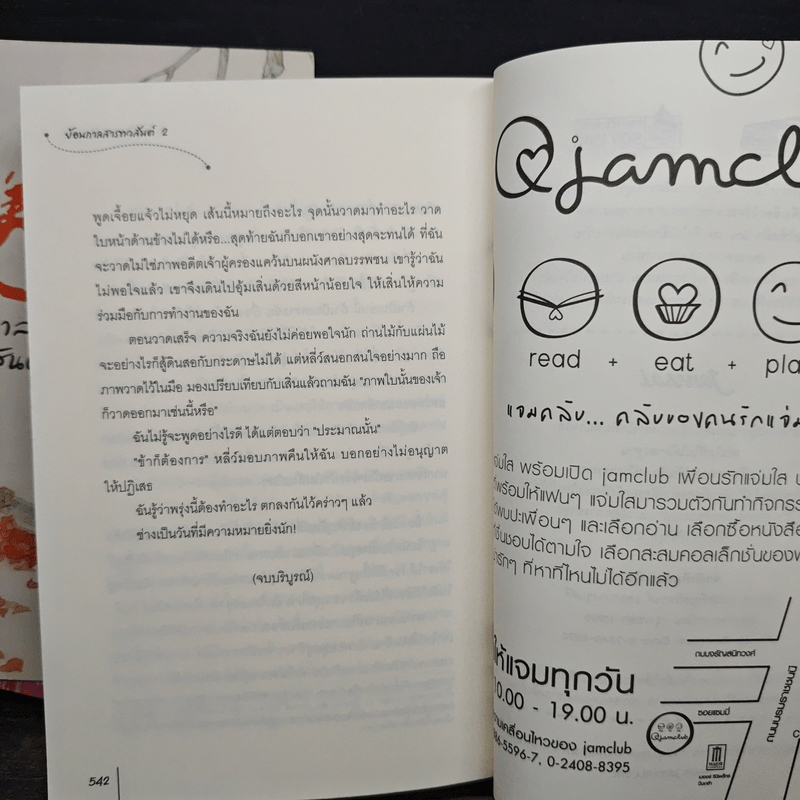 ย้อนกาลสารทวสันต์ 2
พูดเจื้อยแจ้วไม่หยุด เส้นนี้หมายถึงอะไร จุดนั้นวาดมาทำอะไร วาด
ใบหน้าด้านข้างไม่ได้หรือ...สุดท้ายฉันก็บอกเขาอย่างสุดจะทนได้ ที่ฉัน
จะวาดไม่ใช่ภาพอดีตเจ้าผู้ครองแคว้นบนผนังศาลบรรพชน เขารู้ว่าฉัน
ไม่พอใจแล้ว เขาจึงเดินไปอุ้มเสิ่นด้วยสีหน้าน้อยใจ ให้เสิ่นให้ความ
ร่วมมือกับการทำงานของฉัน
ตอนวาดเสร็จ ความจริงฉันยังไม่ค่อยพอใจนัก ถ่านไม้กับแผ่นไม้
จะอย่างไรก็สู้ดินสอกับกระดาษไม่ได้ แต่หลี่ว์สนอกสนใจอย่างมาก ถือ
ภาพวาดไว้ในมือ มองเปรียบเทียบกับเสิ่นแล้วถามฉัน "ภาพใบนั้นของเจ้า
ก็วาดออกมาเช่นนี้หรือ"
ฉันไม่รู้จะพูดอย่างไรดี ได้แต่ตอบว่า "ประมาณนั้น"
"ข้าก็ต้องการ" หลี่ว์มอบภาพคืนให้ฉัน บอกอย่างไม่อนุญาต
ให้ปฏิเสธ
ฉันรู้ว่าพรุ่งนี้ต้องทำอะไร ตกลงกันไว้คร่าวๆ แล้ว
ช่างเป็นวันที่มีความหมายยิ่งนัก!
(จบบริบูรณ์)
542
jamcl
read + eat + pla
แจมคลับ... คลับของคนรักแจ่ม
แจ่มใส พร้อมเปิด jamclub เพื่อนรักแจ่มใส
พร้อมให้แฟนๆ แจ่มใสมารวมตัวกันทำกิจกรร
พบปะเพื่อนๆ และเลือกอ่าน เลือกซื้อหนังสือ
ชื่นชอบได้ตามใจ เลือกสะสมคอลเล็กชั่นของ
ารักๆ ที่หาที่ไหนไม่ได้อีกแล้ว
ให้แจมทุกวัน
10.00 - 19.00 น.
ความเคลื่อนไหวของ jamclub
86-5596-7, 0-2408-8395
ถนนจรัญสนิทวงศ์
ซอยแซมมี่
ถนนบรมราชชนนี
jamclub